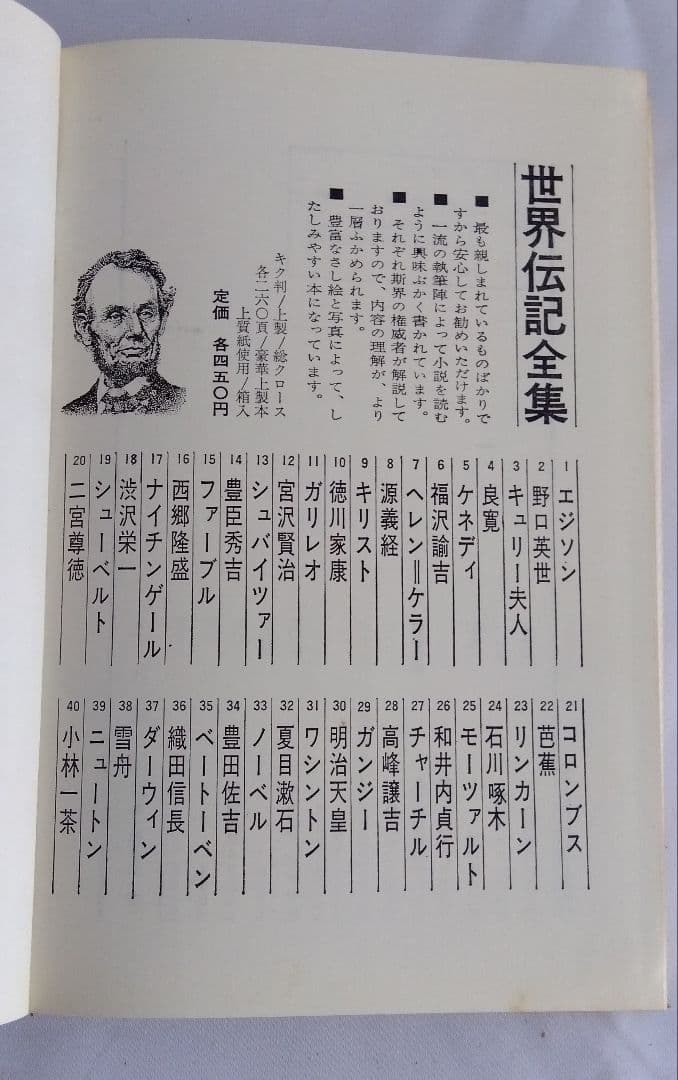 世界伝記全集
■ 最も親しまれているものばかりで
すから安心してお勧めいただけます。
■ 一流の執筆陣によって小説を読む
ように興味ぶかく書かれています。
■ それぞれ斯界の権威者が解説して
おりますので、内容の理解が、より
一層ふかめられます。
■ 豊富なさし絵と写真によって、し
たしみやすい本になっています。
キク判/上製/総クロース
各二六〇頁/豪華上製本
上質紙使用/箱入
定価 各四五〇円
1 エジソン
2 野口英世
3 キュリー夫人
4 良寛
5 ケネディ
6 福沢諭吉
7 ヘレン=ケラー
8 源義経
9 キリスト
10 徳川家康
11 ガリレオ
12 宮沢賢治
13 シュバイツァー
14 豊臣秀吉
15 ファーブル
16 西郷隆盛
17 ナイチンゲール
18 渋沢栄一
19 シューベルト
20 二宮尊徳
21 コロンブス
22 芭蕉
23 リンカーン
24 石川啄木
25 モーツァルト
26 和井内貞行
27 チャーチル
28 高峰譲吉
29 ガンジー
30 明治天皇
31 ワシントン
32 夏目漱石
33 ノーベル
34 豊田佐吉
35 ベートーベン
36 織田信長
37 ダーウィン
38 雪舟
39 ニュートン
40 小林一茶